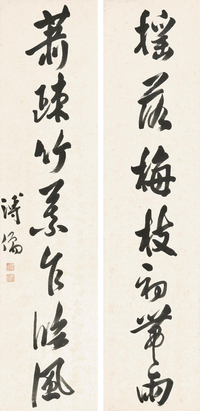 搖落梅枝初帶雨
蕭疎竹葉乍臨風
溥儒